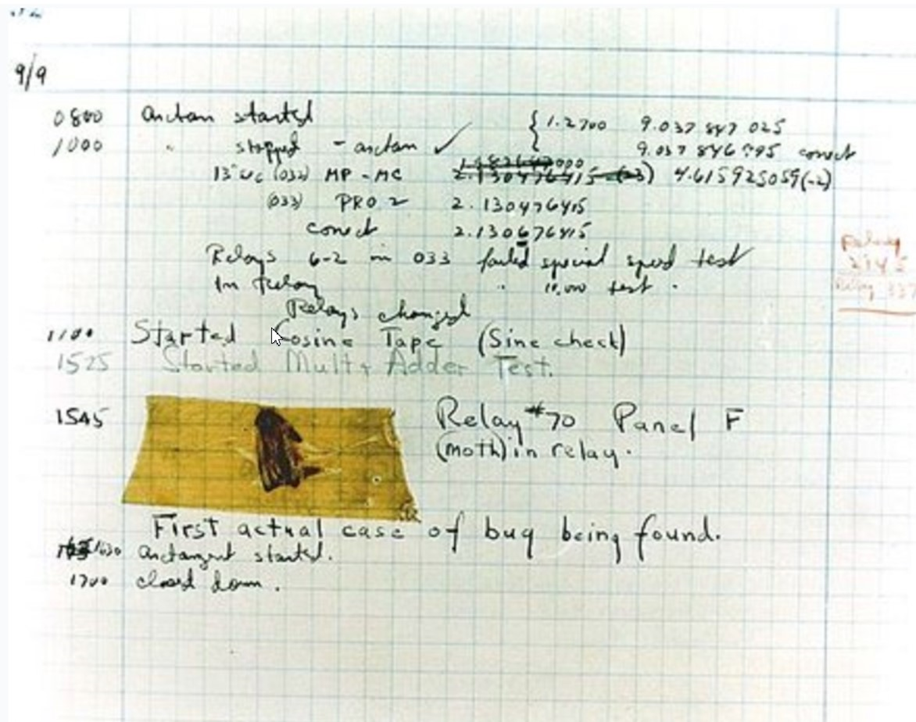 9/9
0800 Antan started { 1.2700 9.037 847 025
1000 " stopped - antan ✓ 9.037 846 995 correct
13" uc (032) MP - MC 2.130476415 (-3) 4.615925059(-2)
(033) PRO 2 2.130476415
correct 2.130676415
Relays 6-2 in 033 failed special speed test
In Relay " 10.000 test .
Relays changed
1100 Started Cosine Tape (Sine check)
1525 Started Mult + Adder Test.
1545 Relay #70 Panel F
(moth) in relay.
First actual case of bug being found.
1630 Antangent started.
1700 closed down.
Relay
2145
Relay 337